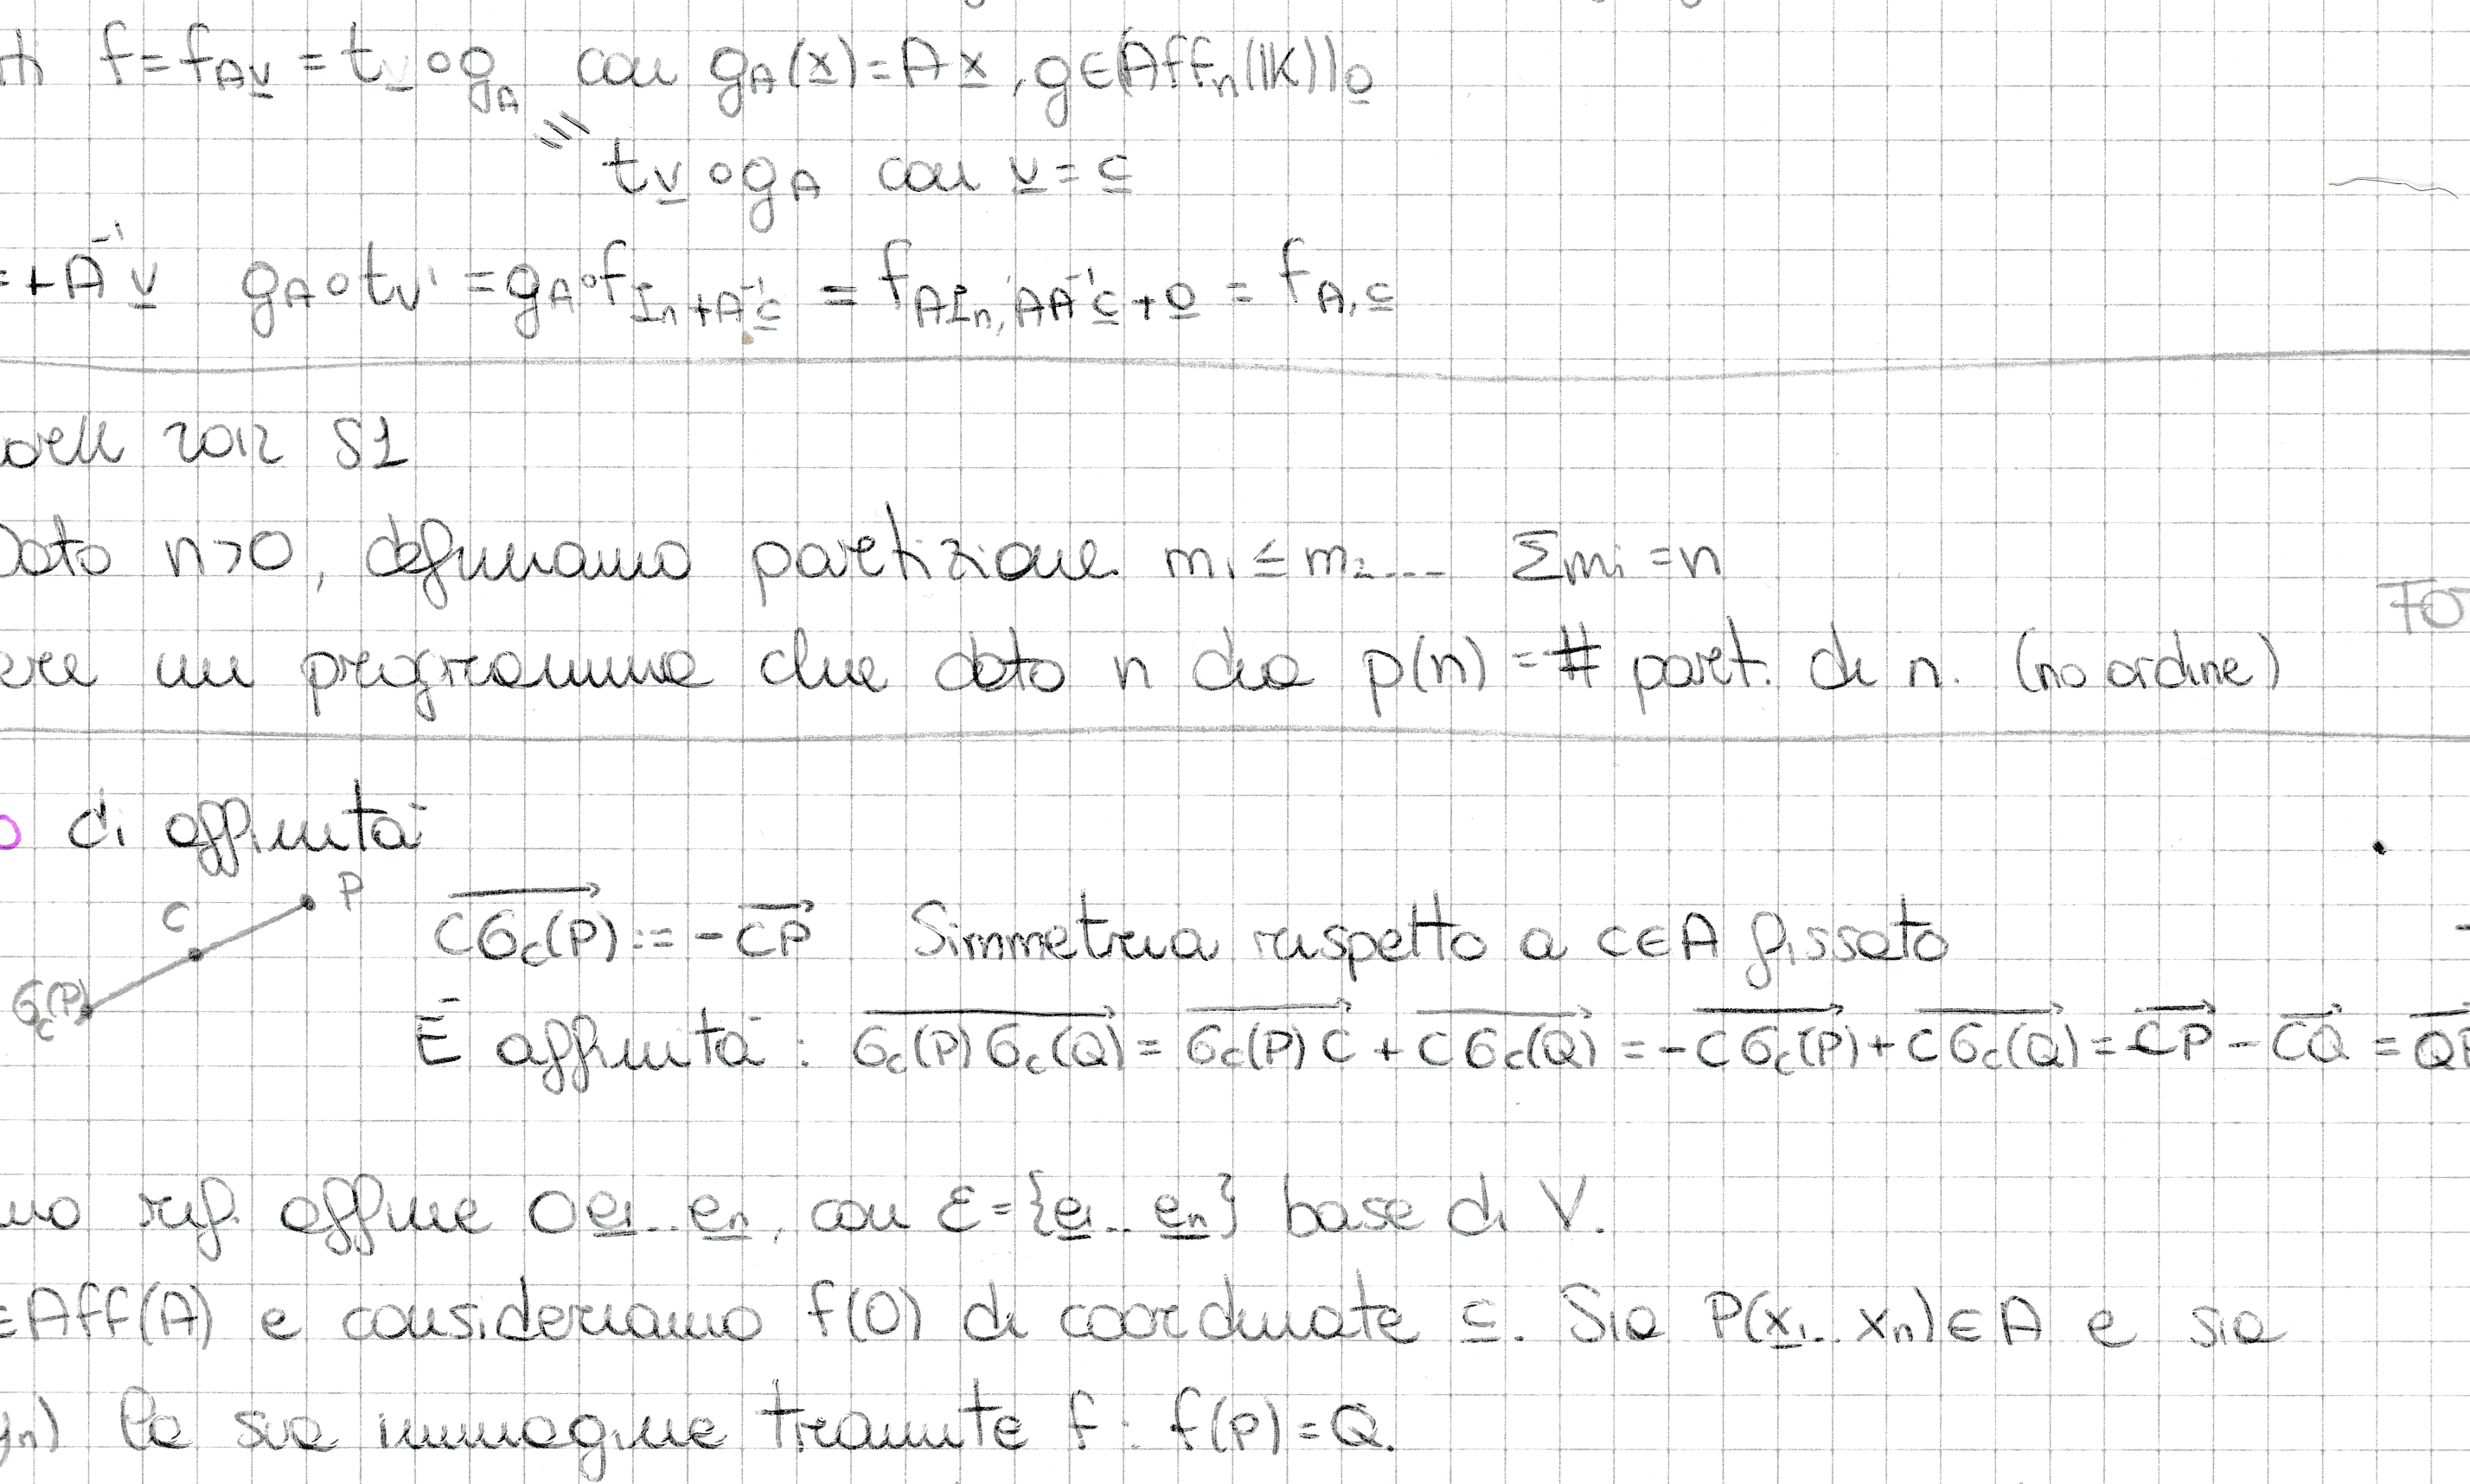 f=f_{A\underline{v}} = t_{\underline{v}} ∘ g_A con g_A(\underline{x})=A\underline{x}, g∈(Aff_n(𝕂))_{\underline{0}}
t_{\underline{v}} ∘ g_A con \underline{v}=\underline{c}
=+A^{-1}\underline{v} g_A∘t_{v'} = g_A∘f_{I_n+A^{-1}\underline{c}} = f_{AI_n, AA^{-1}\underline{c}+\underline{0}} = f_{A,\underline{c}}
2012 S1
Dato n>0, definiamo partizione m_1 ≤ m_2.... Σm_i =n
ere un programma che dato n dia p(n) = # part. di n. (no ordine)
FO
o di affinità
C P σ_c(P)
\overrightarrow{Cσ_c(P)} := -\overrightarrow{CP} Simmetria rispetto a C∈A fissato
È affinità: \overrightarrow{σ_c(P)σ_c(Q)} = \overrightarrow{σ_c(P)C} + \overrightarrow{Cσ_c(Q)} = -\overrightarrow{Cσ_c(P)} + \overrightarrow{Cσ_c(Q)} = \overrightarrow{CP} - \overrightarrow{CQ} = \overrightarrow{QP}
mo rif. affine O\underline{e_1}..\underline{e_n}, con ℰ={\underline{e_1}..\underline{e_n}} base di V.
∈Aff(A) e consideriamo f(O) di coordinate \underline{c}. Sia P(x_1..x_n)∈A e sia
y_n) la sua immagine tramite f: f(P)=Q.